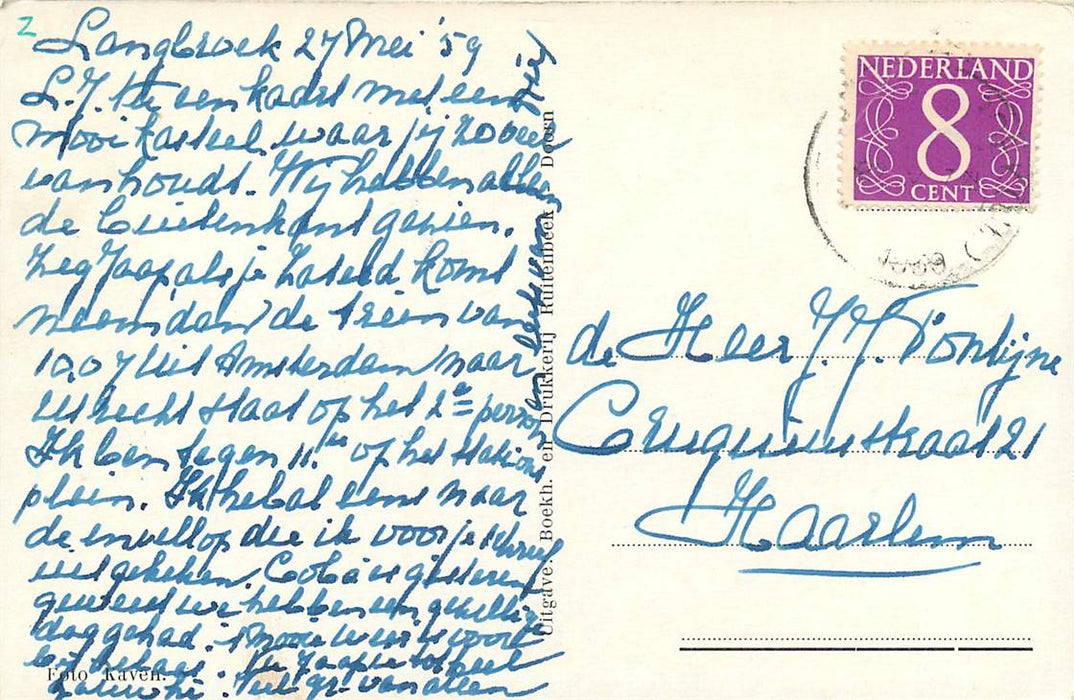 2
Langbroek 27 Mei '59
L.J. Hier een kaart met een
mooi kasteel waar jij zo veel
van houdt. Wij hebben allen
de buitenkant gezien.
Zeg Jaap als je Zaterd komt
neem dan de trein van
10.07 uit Amsterdam naar
Utrecht staat op het 2e perron
Ik ben tegen 11 op het stations
plein. Ik heb al eens naar
de envellop die ik voor je schreef
uitgekeken. Coba is gisteren
geweest we hebben een gezellige
dag gehad. mooi weer
Jaapie tot
Veel gr. van allen
en
Foto Raven.
Uitgave: Boekh. en Drukkerij Ruitenbeek Doorn
NEDERLAND
8
CENT
de Heer J.J. Fontijne
straat 21
Haarlem